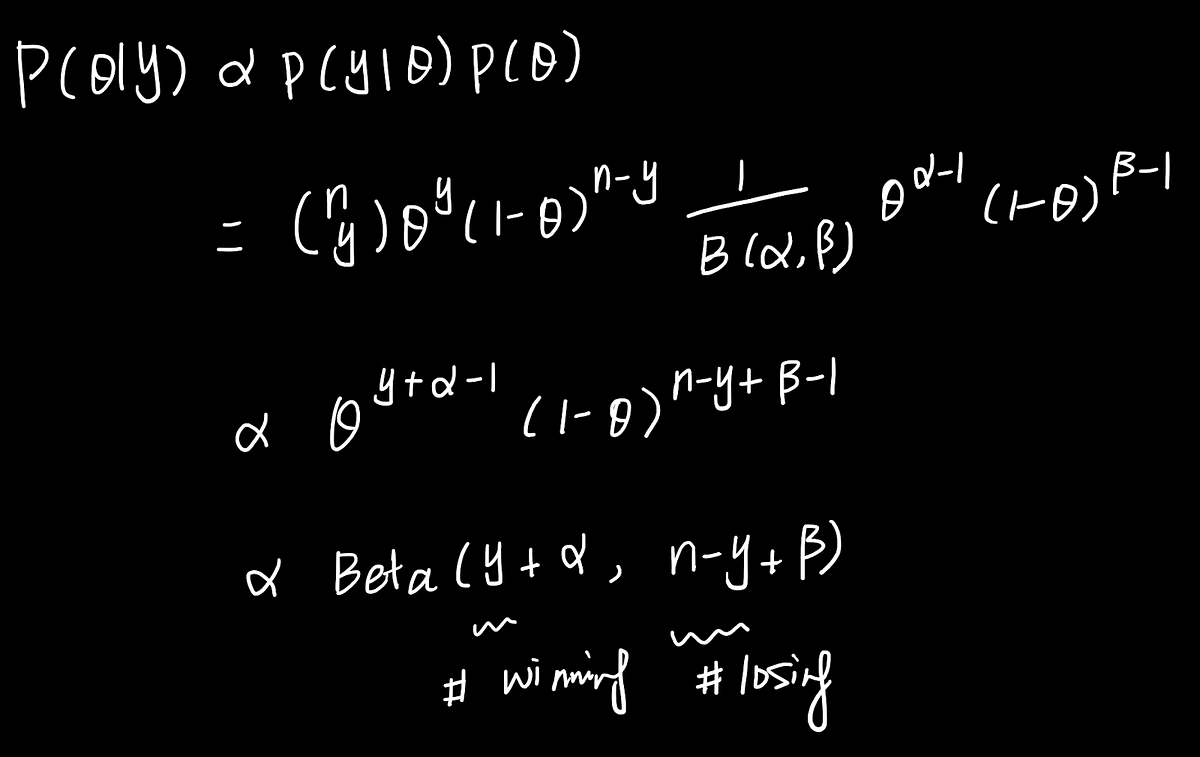 P(θ|y) ∝ p(y|θ) p(θ)
= (n y) θ^y (1-θ)^{n-y} 1/B(α,β) θ^{α-1} (1-θ)^{β-1}
∝ θ^{y+α-1} (1-θ)^{n-y+β-1}
∝ Beta(y+α, n-y+β)
# winning # losing